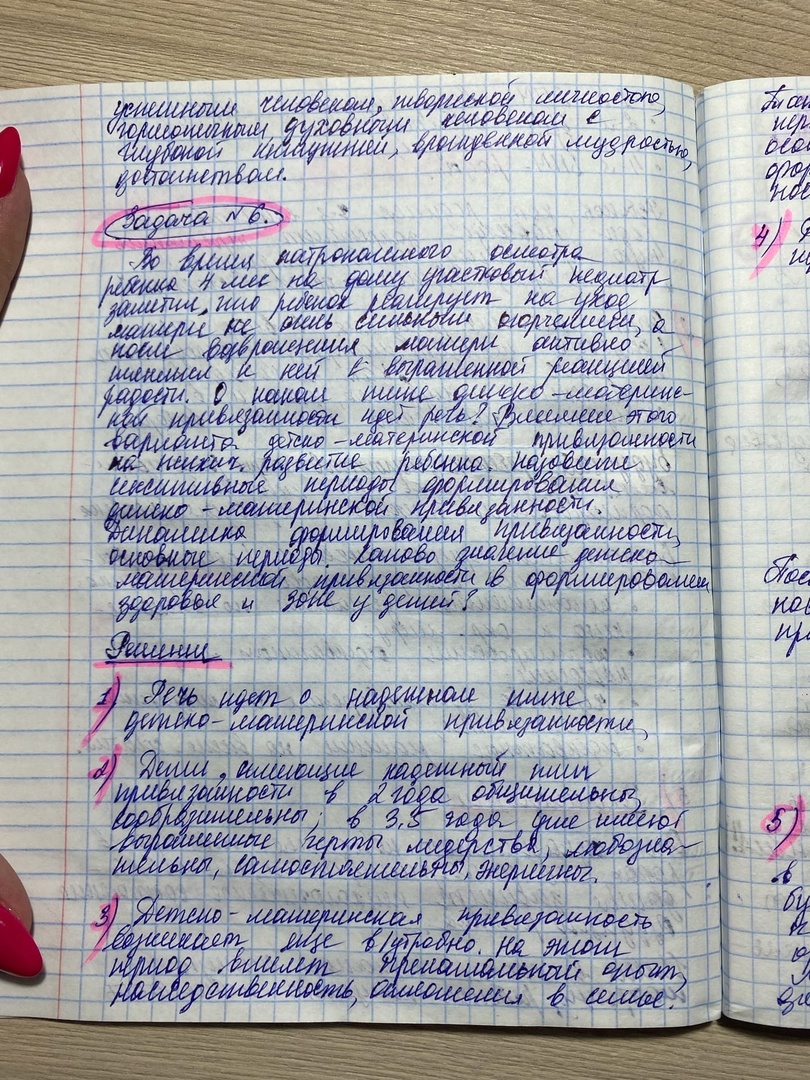 успешным человеком, творческой личностью,
гармоничным духовным человеком с
глубокой интуицией, врожденной мудростью,
достоинством.
Задача № 6.
Во время патронажного осмотра
ребенка 4 мес на дому участковый педиатр
заметил, что ребенок реагирует на уход
матери не очень сильным огорчением, а
после возвращения матери активно
тянется к ней с выраженной реакцией
радости. О каком типе детско-материнс-
кой привязанности идет речь? Влияние этого
варианта детско-материнской привязанности
на психич. развитие ребенка. Назовите
сенситивные периоды формирования
детско-материнской привязанности.
Динамика формирования привязанности,
основные периоды. Каково значение детско-
материнской привязанности в формировании
здоровья и ЗОЖ у детей?
Решение
1) Речь идет о надежном типе
детско-материнской привязанности,
2) Дети, имеющие надежный тип
привязанности в 2 года общительны,
сообразительны; в 3,5 года уже имеют
выраженные черты лидерства, любозна-
тельны, самостоятельны, энергичны.
3) Детско-материнская привязанность
возникает еще в/утробно. На этот
период влияет пренатальный опыт,
наследственность, отношения в семье.
4)
5)